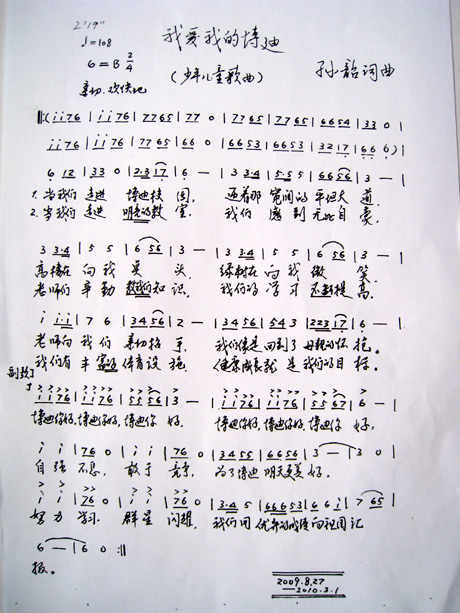 2'19"
♩=108
我爱我的博迪
6=B 2/4
(少年儿童歌曲)
孙韶词曲
亲切、欢快地
‖:(i i 7 6 | i i 7 6 | 7 7 6 5 | 7 7 0 | 7 7 6 5 | 7 7 6 5 | 6 6 5 4 | 3 3 0 |
i i 7 6 | i i 7 6 | 7 7 6 5 | 6 6 0 | 6 6 5 3 | 6 6 5 3 | 3 2 1 7 | 6 6 6) |
6 1 2 | 3 3 0 | 2·3 1 7 | 6 — | 3 3·4 | 5·5 5 | 6 6 5 6 | 3 — |
1. 当我们 走进 博迪校 园, 迎着那 宽阔的 平坦大 道.
2. 当我们 走进 明亮的教 室, 我们 感到 无比自 豪.
3 3·4 | 5 5 | 6 5 6 | 3 — | 3 3·4 | 5 5 | 6 5 6 | 3 — |
高楼在 向我 点头, 绿树在 向我 微 笑.
老师们 辛勤 教我们知 识, 我们的 学习 不断提 高.
i i·i | 7 6 | 3 4 5 6 | 2 — | 3 4 5 6 | 5 4 3 | 2 2 3 1 7 | 6 — |
老师向 我们 亲切招 手, 我们像是 回到了 母亲的怀 抱.
我们有 丰富的 体育设 施, 健康成长就 是 我们的目 标.
副歌
i i 7 6 i i 7 6 | 5 5 5 6 | 3 — | i i 7 6 i i 7 6 | 5 5 6 7 | 6 — |
博迪你好,博迪你好,博迪你 好. 博迪你好,博迪你好,博迪你 好.
i i | 7 6 0 | i i | 7 6 0 | 3 4 5 5 | 6 6 5 6 | 3 — | 3 0 |
自强 不息, 敢于 竞争, 为了博迪 明天更美 好.
i i | 7 6 0 | i i | 7 6 0 | 3·4 5 | 6 6 6 5 3 | 6 6 i | 7 6 5 |
努力 学习, 群星 闪耀, 我们用 优异的成绩 向祖国 汇
6 — | 6 0 :‖
报。
2009.8.27
—2010.3.1